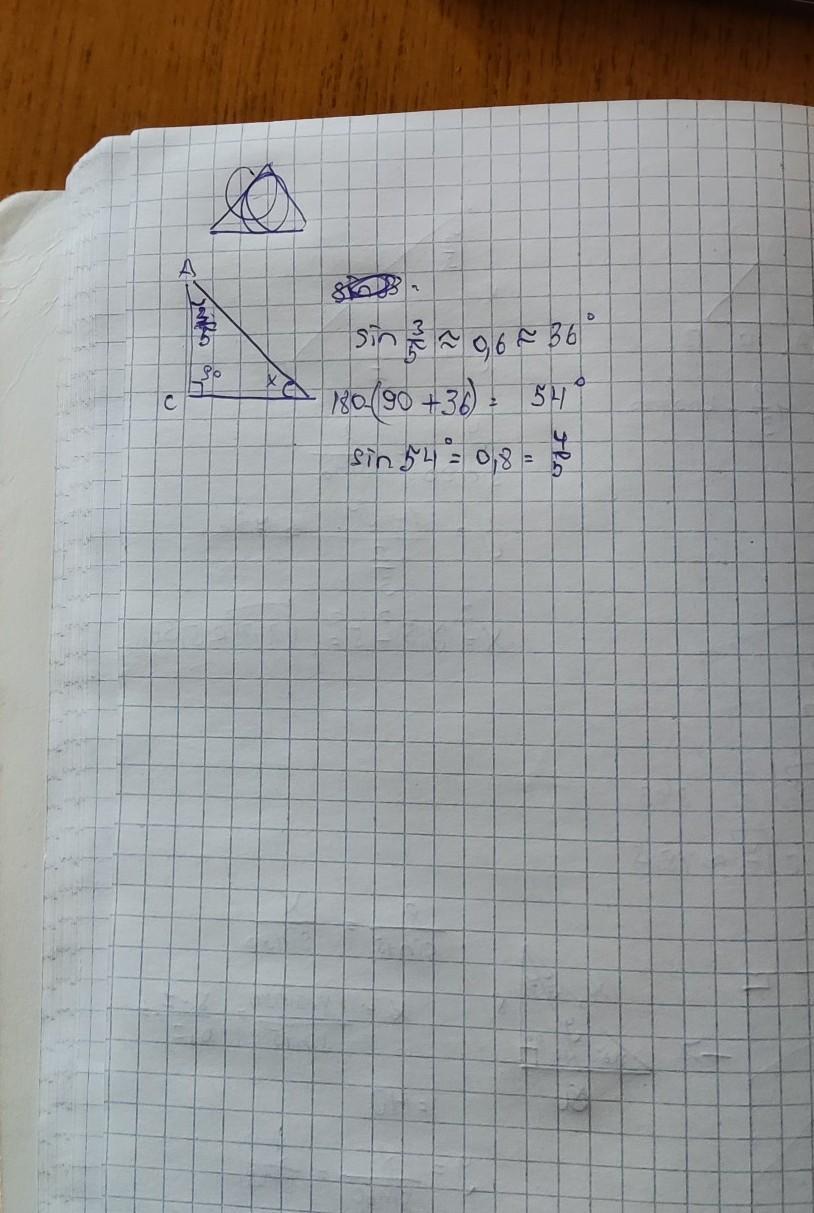 A
3/5
90
x
C
sin 3/5 ≈ 0,6 ≈ 36°
180-(90+36) = 54°
sin 54° = 0,8 = 4/5